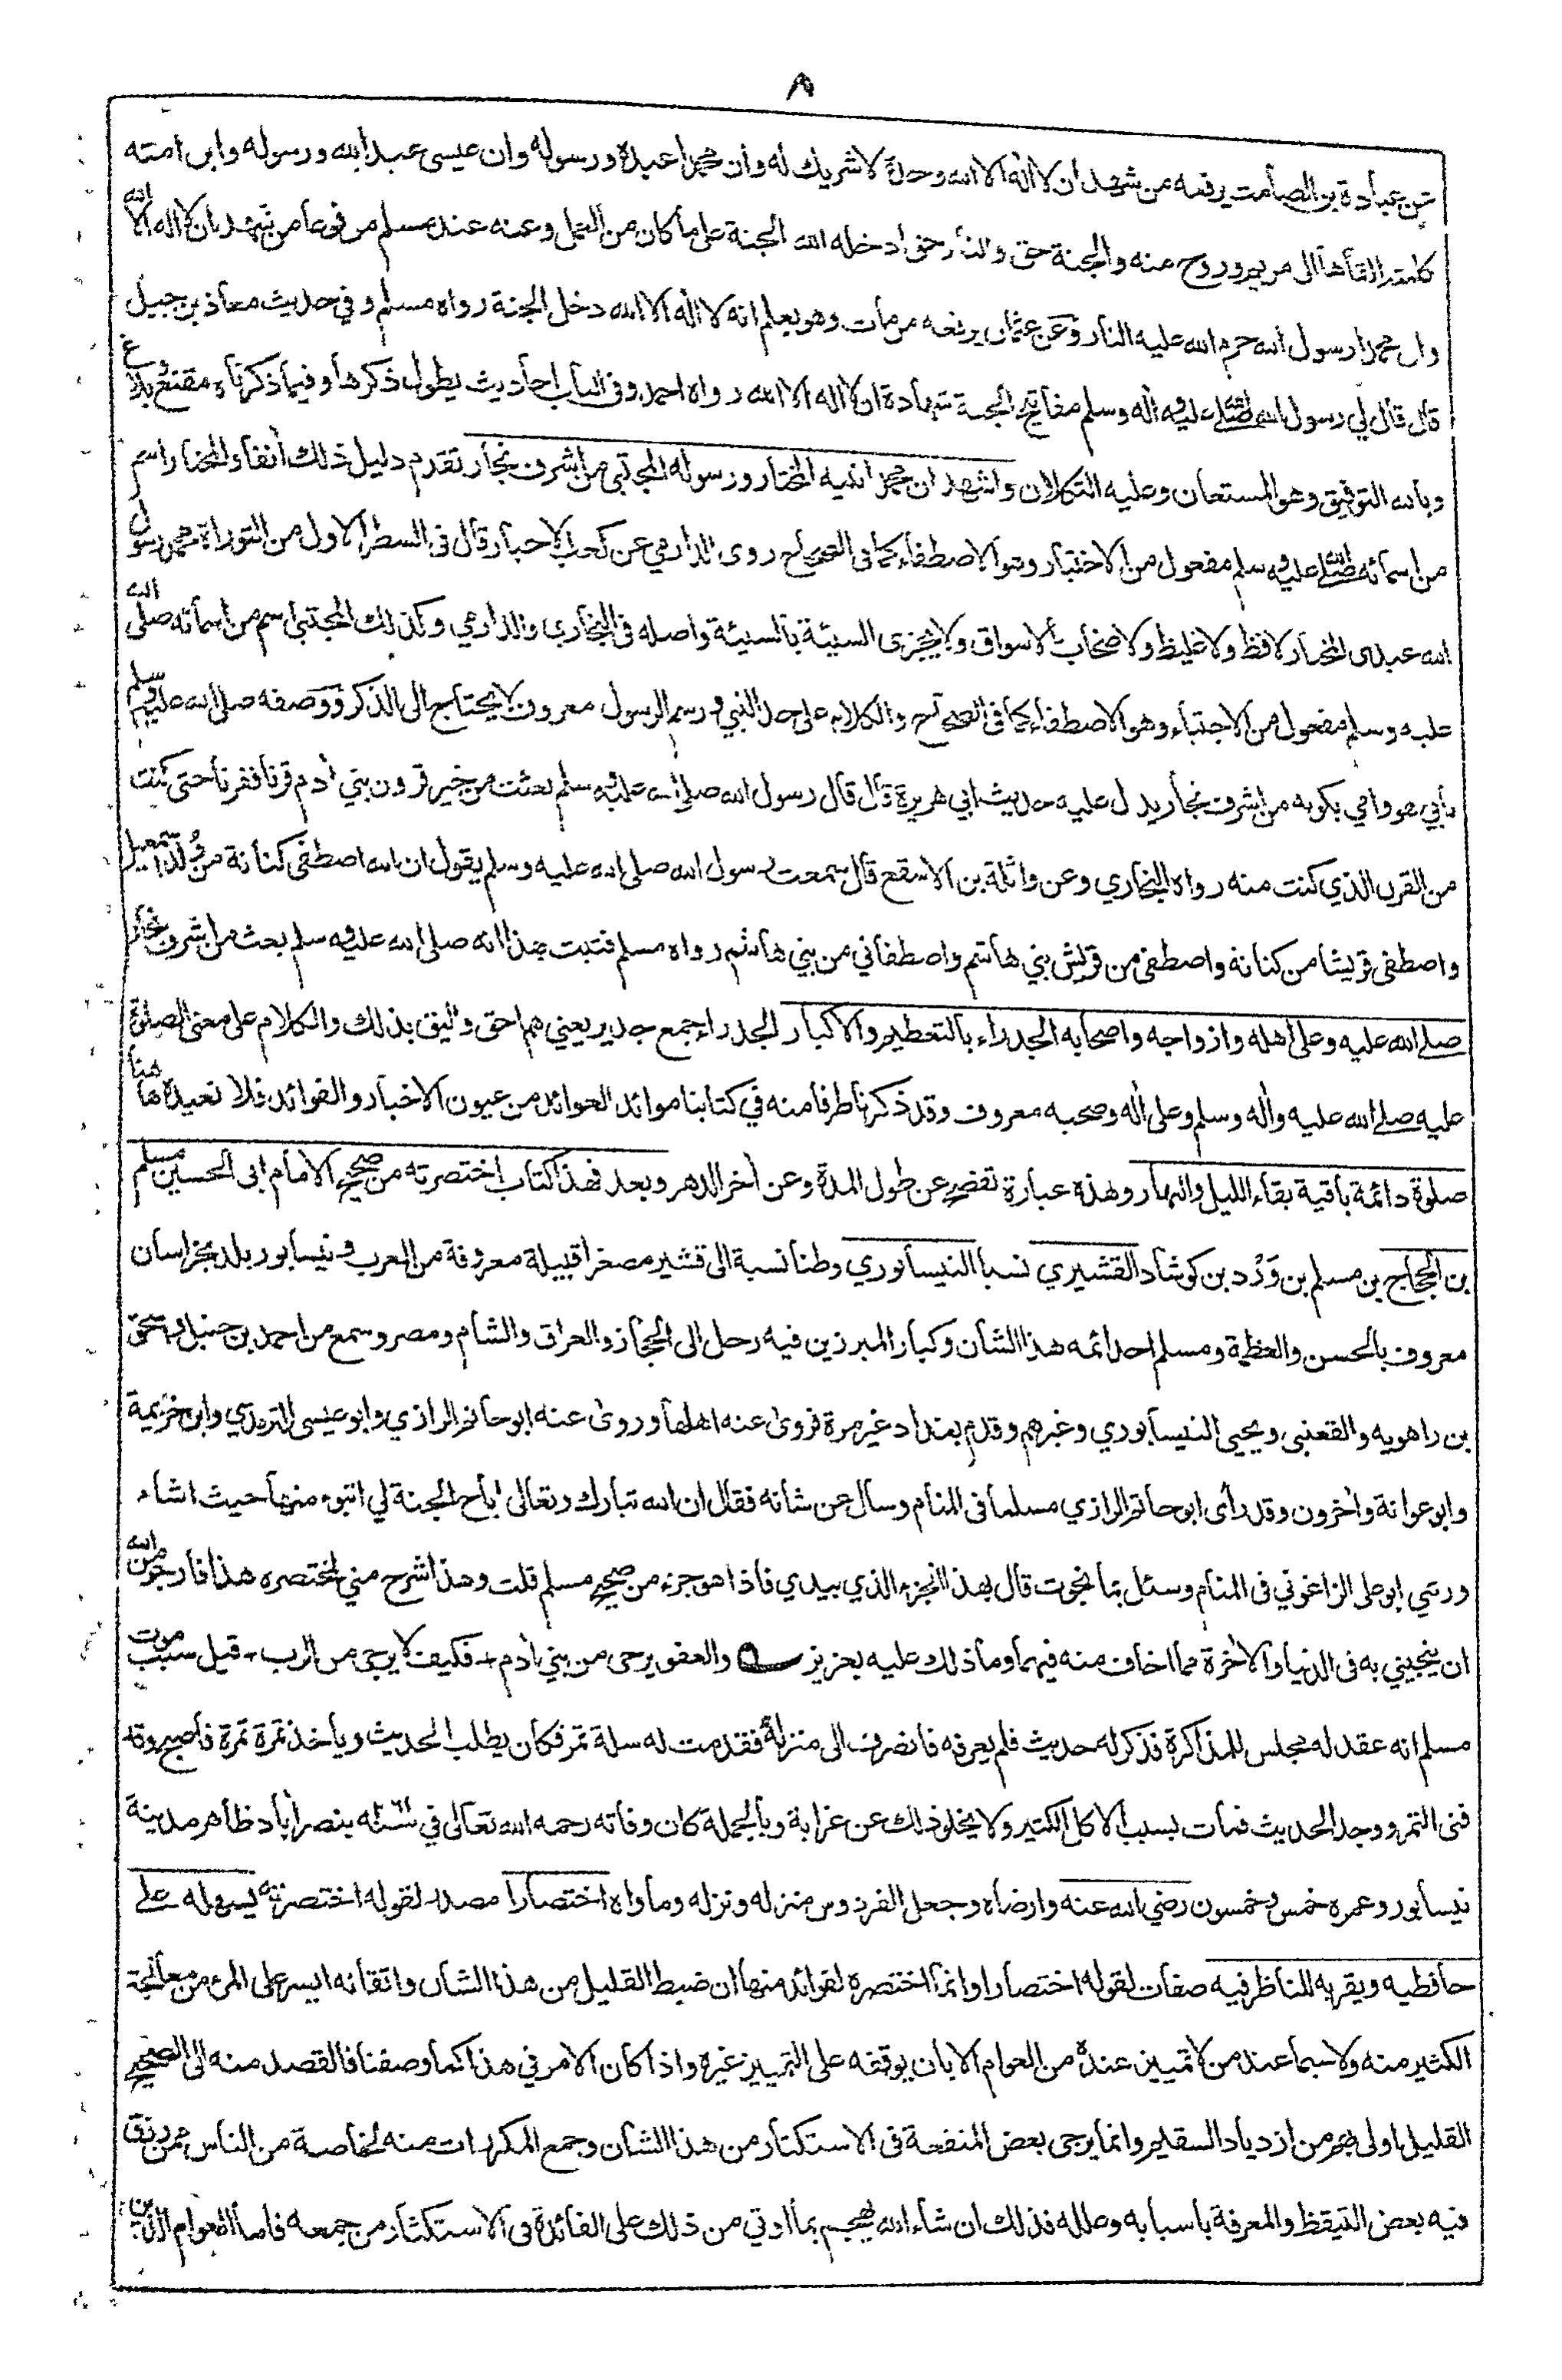 ٨
عن عبادة بن الصامت يرفعه من شهد ان لا اله الا الله وحدة لا شريك له وأن محمدا عبدة ورسوله وان عيسى عبد الله ورسوله وابن امته
كلمته القاها الى مريم وروح منه والجنة حق والنار حق ادخله الله الجنة على ما كان من العمل وعنه عند مسلم مرفوعا من شهد ان لا اله الا الله
وان محمدا رسول الله حرم الله عليه النار وعن عثمان يرفعه من مات وهو يعلم انه لا اله الا الله دخل الجنة رواه مسلم وفي حديث معاذ بن جبل
قال قال لي رسول الله صلى الله عليه واله وسلم مفاتيح الجنة شهادة ان لا اله الا الله رواه احمد وفى الباب احاديث يطول ذكرها وفيما ذكرناه مقنع وبلاغ
وبالله التوفيق وهو المستعان وعليه التكلان واشهد ان محمدا نبيه المختار ورسوله المجتبى من اشرف نجار تقدم دليل ذلك أنفا والمختار اسم
من اسمائه صلى الله عليه وسلم مفعول من الاختيار وهو الاصطفاء كما فى الصحاح روى الدارمي عن كعب الاحبار قال فى السطر الاول من التوراة محمد رسول
الله عبدى المختار لا فظ ولا غليظ ولا صخاب بالاسواق ولا يجزى السيئة بالسيئة واصله فى البخاري والدارمي وكذلك المجتبى اسم من اسمائه صلى الله
عليه وسلم مفعول من الاجتباء وهو الاصطفاء كما فى الصحاح والكلام على حد النبي ورسم الرسول معروف لا يحتاج الى الذكر ووصفه صلى الله عليه وسلم
بأبي هو وامي بكونه من اشرف نجار يدل عليه حديث ابي هريرة قال قال رسول الله صلى الله عليه وسلم بعثت من خير قرون بني أدم قرنا فقرنا حتى كنت
من القرن الذي كنت منه رواه البخاري وعن واثلة بن الاسقع قال سمعت رسول الله صلى الله عليه وسلم يقول ان الله اصطفى كنانة من ولد اسمعيل
واصطفى قريشا من كنانة واصطفى من قريش بني هاشم واصطفاني من بني هاشم رواه مسلم فثبت بهذا انه صلى الله عليه وسلم بعث من اشرف نجار
صلى الله عليه وعلى اهله وازواجه واصحابه الجدراء بالتعظيم والاكبار الجدراء جمع جدير يعني هم احق واليق بذلك والكلام على معنى الصلوة
عليه صلى الله عليه وأله وسلم وعلى أله وصحبه معروف وقد ذكرنا طرفا منه في كتابنا موائد العوائد من عيون الاخبار والفوائد فلا نعيده ها هنا
صلوة دائمة باقية بقاء الليل والنهار وهذه عبارة تفصح عن طول المدة وعن أخر الدهر وبعد فهذا كتاب اختصرته من صحيح الامام ابى الحسين مسلم
بن الحجاج بن مسلم بن وَرْد بن كوشاد القشيري نسبا النيسابوري وطنا نسبة الى قشير مصغرا قبيلة معروفة من العرب ونيسابور بلد بخراسان
معروف بالحسن والعظمة ومسلم احد ائمه هذا الشأن وكبار المبرزين فيه رحل الى الحجاز والعراق والشام ومصر وسمع من احمد بن حنبل واسحق
بن راهويه والقعنبى ويحيى النيسابوري وغيرهم وقدم بغداد غير مرة فروى عنه اهلها وروى عنه ابو حاتم الرازي وابو عيسى الترمذي وابن خزيمة
وابو عوانة وأخرون وقد رأى ابو حاتم الرازي مسلما فى المنام وسأل عن شانه فقال ان الله تبارك وتعالى اباح الجنة لي اتبوء منها حيث اشاء
ورئي ابو على الزاغوني فى المنام وسئل بما نجوت قال بهذا الجزء الذي بيدي فاذا هو جزء من صحيح مسلم قلت وهذا شرح مني لمختصره هذا فارجو من الله
ان ينجيني به فى الدنيا والأخرة مما اخاف منه فيهما وما ذلك عليه بعزيز والعفو يرجى من بني أدم + فكيف لا يرجى من الرب + قيل سبب موت
مسلم انه عقد له مجلس للمذاكرة فذكر له حديث فلم يعرفه فانصرف الى منزله فقدمت له سلة تمر فكان يطلب الحديث ويأخذ تمرة تمرة فاصبح وقد
فنى التمر ووجد الحديث فمات بسبب الاكل الكثير ولا يخلو ذلك عن غرابة وبالجملة كان وفاته رحمه الله تعالى في سنة ٢٦١ بنصر أباد ظاهر مدينة
نيسابور وعمره خمس وخمسون رضي الله عنه وارضاه وجعل الفردوس منزله ونزله ومأواه اختصارا مصدر لقوله اختصرته يسهله على
حافظيه ويقربه للناظر فيه صفات لقوله اختصارا وانما اختصره لفوائد منها ان ضبط القليل من هذا الشأن واتقانه ايسر على المرء من معالجة
الكثير منه ولا سيما عند من لا تمييز عندة من العوام الا بان يوقفه على التمييز غيرة واذا كان الامر في هذا كما وصفنا فالقصد منه الى الصحيح
القليل اولى بهم من ازدياد السقيم وانما يرجى بعض المنفعة فى الاستكثار من هذا الشأن وجمع المكررات منه لخاصة من الناس ممن رزق
فيه بعض التيقظ والمعرفة باسبابه وعلله فذلك ان شاء الله يهجم بما اوتي من ذلك على الفائدة فى الاستكثار من جمعه فاما العوام الذين